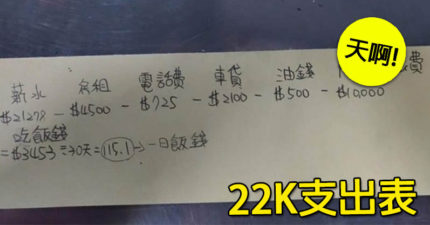 天啊!
薪水 房租 電話費 車貸 油錢 費
$21278 - $4500 - $725 - $2100 - $500 - $10,000
吃飯錢
= $3453 ÷ 30天 = 115.1 → 一日飯錢
22K支出表